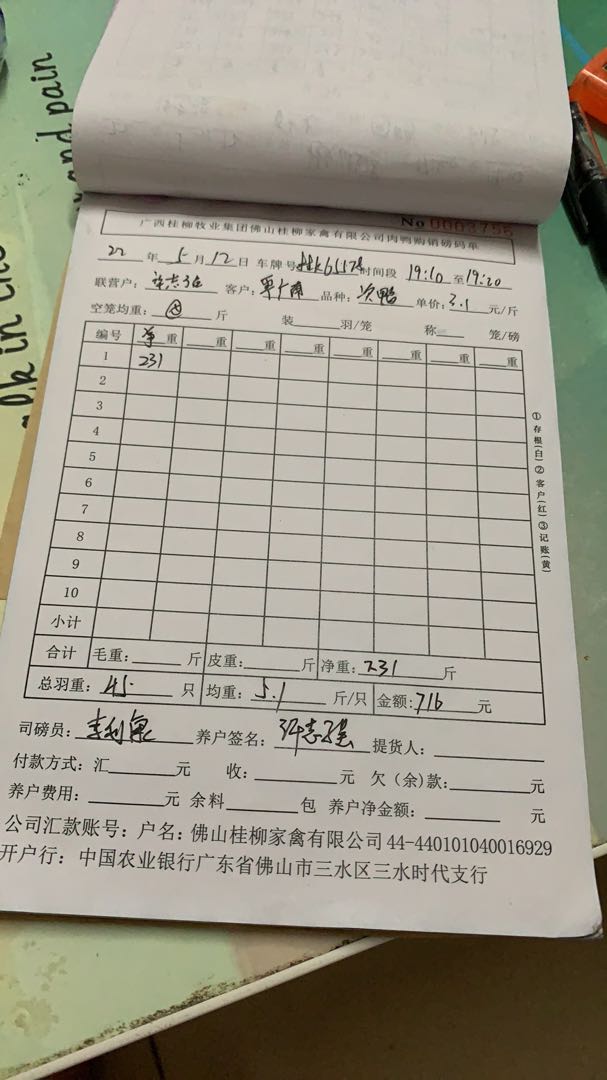 and pain
alk in the
No 0003755
广西桂柳牧业集团佛山桂柳家禽有限公司肉鸭购销磅码单
22 年 5 月 12 日 车牌号 时间段 19:10 至 19:20
联营户: 客户: 品种: 次鸭 单价: 3.1 元/斤
空笼均重: 斤 装 羽/笼 称 笼/磅
编号 净重 重 重 重 重 重 重 重
1 231
2
3
4
5
6
7
8
9
10
小计
合计 毛重: 斤 皮重: 斤 净重: 231 斤
总羽重: 45 只 均重: 5.1 斤/只 金额: 716 元
司磅员: 养户签名: 提货人:
付款方式: 汇 元 收: 元 欠(余)款: 元
养户费用: 元 余料 包 养户净金额: 元
公司汇款账号: 户名: 佛山桂柳家禽有限公司 44-440101040016929
开户行: 中国农业银行广东省佛山市三水区三水时代支行
①存根(白)②客户(红)③记账(黄)